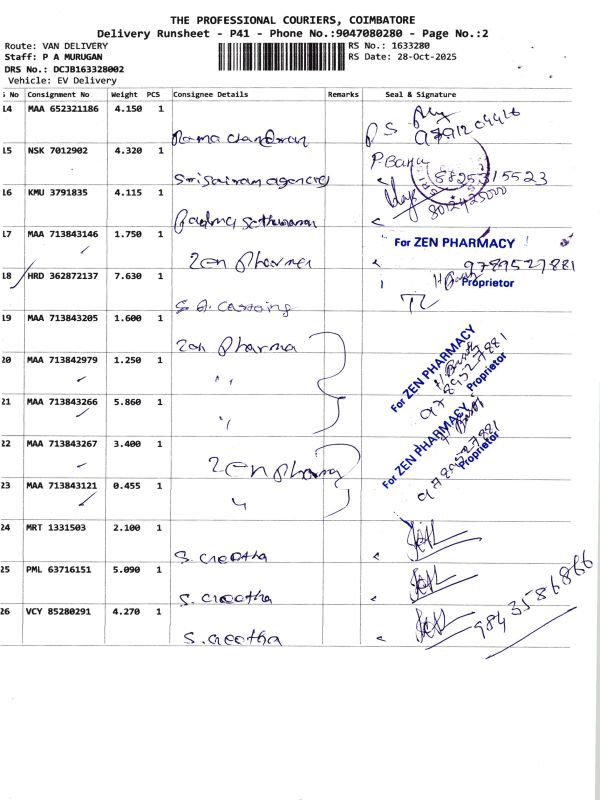 THE PROFESSIONAL COURIERS, COIMBATORE
Delivery Runsheet - P41 - Phone No.:9047080280 - Page No.:2
Route: VAN DELIVERY
RS No.: 1633280
Staff: P A MURUGAN
RS Date: 28-Oct-2025
DRS No.: DCJB163328002
Vehicle: EV Delivery
S No Consignment No Weight PCS Consignee Details Remarks Seal & Signature
14 MAA 652321186 4.150 1
Rama chandran P S
15 NSK 7012902 4.320 1 P. Banu
Srisairam agencies 8825315523
16 KMU 3791835 4.115 1
Padma 8012425000
17 MAA 713843146 1.750 1 For ZEN PHARMACY
Zen Pharma 9789527881
18 HRD 362872137 7.630 1 Proprietor
19 MAA 713843205 1.600 1
Zen Pharma
20 MAA 713842979 1.250 1 For ZEN PHARMACY
" Proprietor
21 MAA 713843266 5.860 1
" For ZEN PHARMACY
22 MAA 713843267 3.400 1 Proprietor
Zen pharma 9789527881
23 MAA 713843121 0.455 1
"
24 MRT 1331503 2.100 1
S. Geetha
25 PML 63716151 5.090 1
S. Geetha
26 VCY 85280291 4.270 1
S. Geetha 9843586866